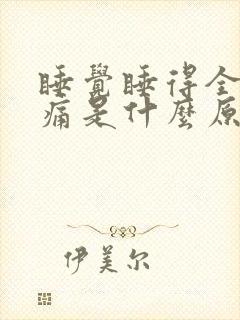 睡覺睡得全
痛是什麼原
伊美尔